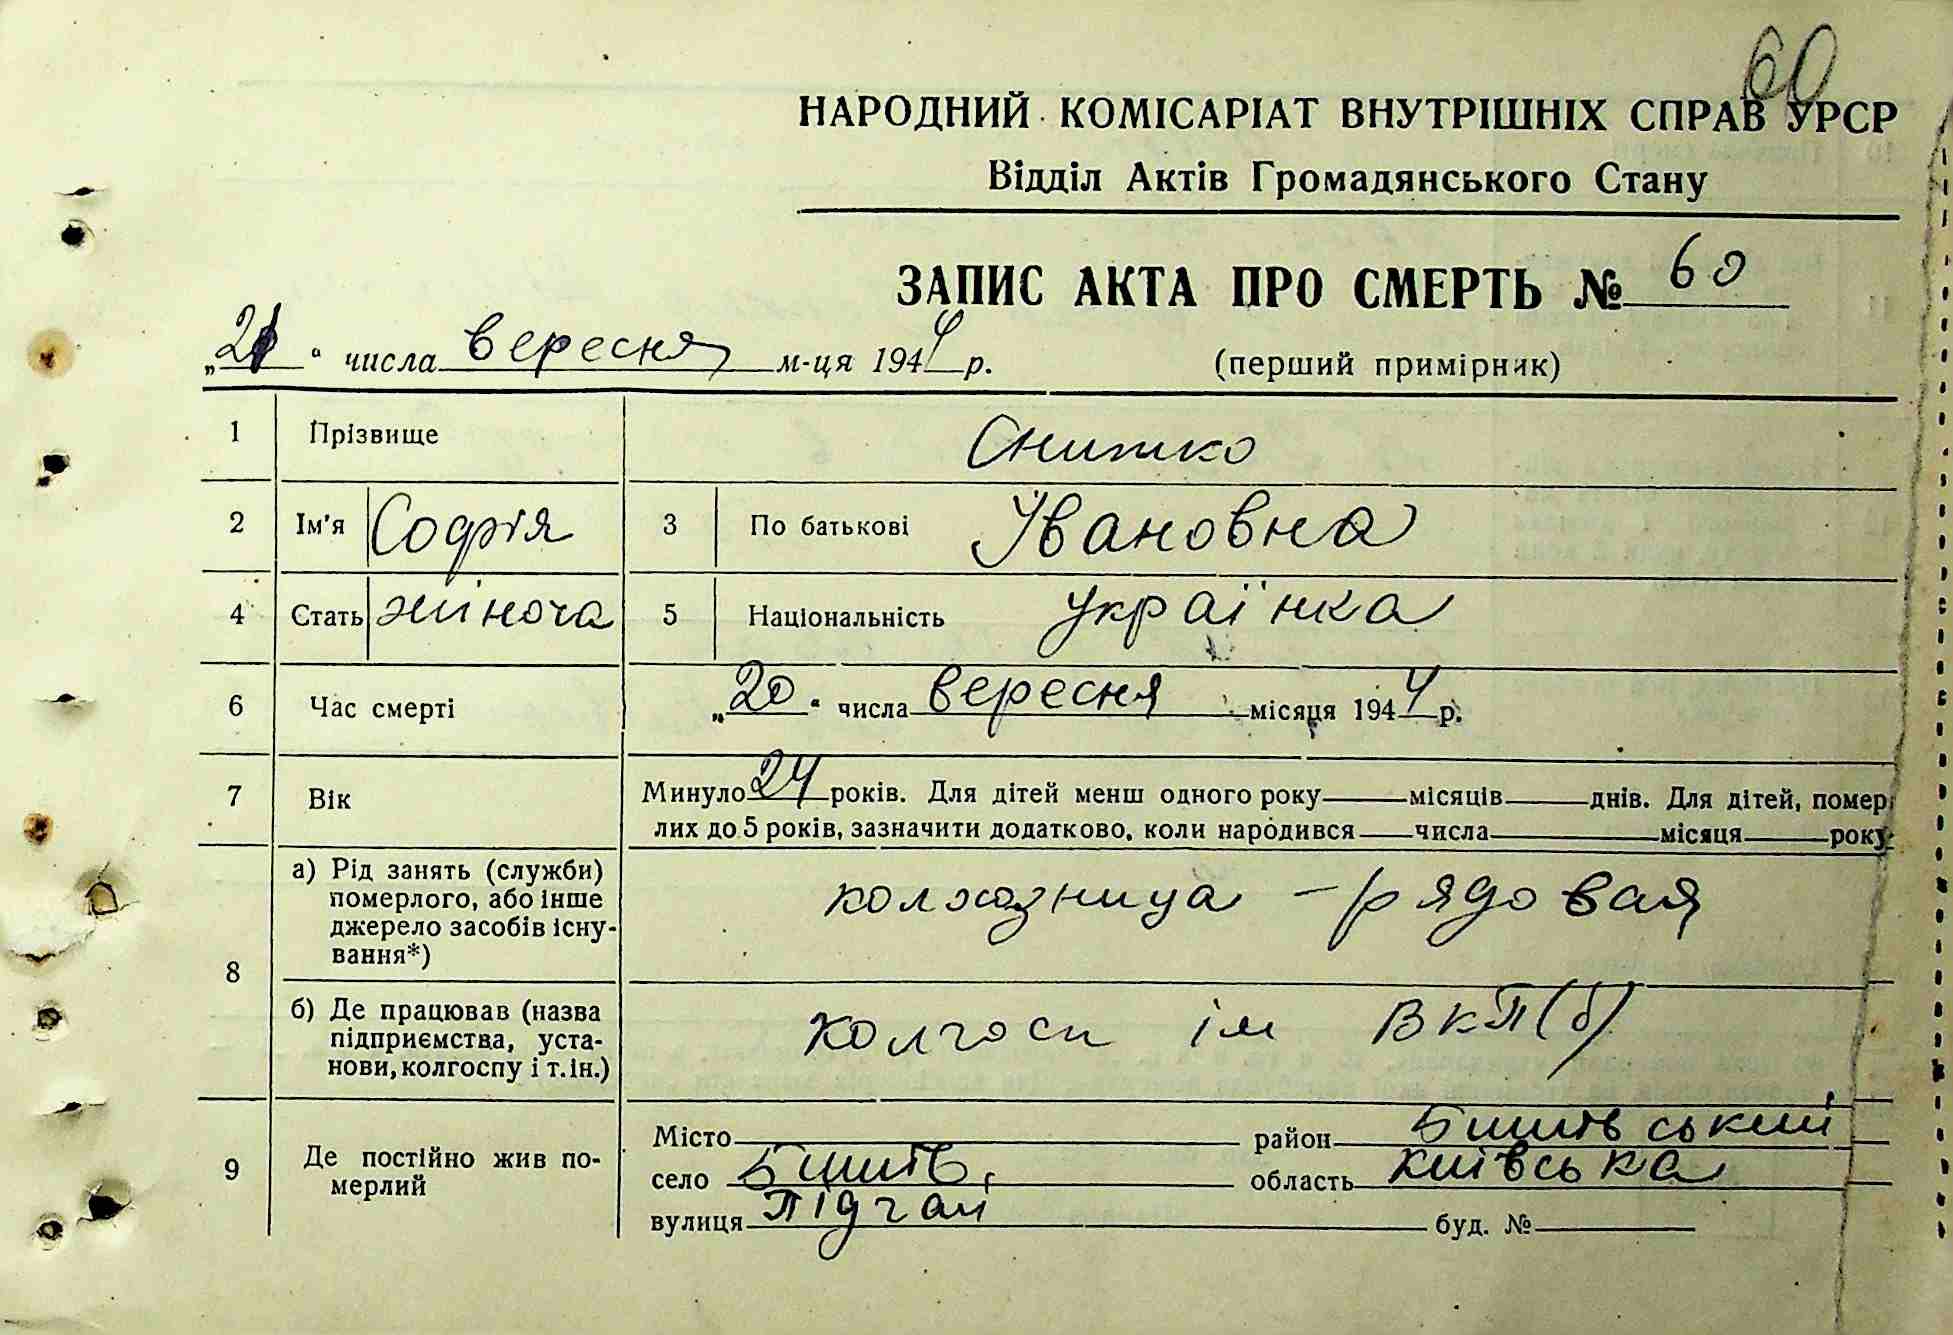 60
НАРОДНИЙ КОМІСАРІАТ ВНУТРІШНІХ СПРАВ УРСР
Відділ Актів Громадянського Стану
ЗАПИС АКТА ПРО СМЕРТЬ № 60
„21“ числа вересня м-ця 1944 р. (перший примірник)
1 Прізвище Снитко
2 Ім'я Софія 3 По батькові Івановна
4 Стать жіноча 5 Національність українка
6 Час смерті „20“ числа вересня місяця 1944 р.
7 Вік Минуло 24 років. Для дітей менш одного року місяців днів. Для дітей, помер
лих до 5 років, зазначити додатково, коли народився числа місяця року
8 а) Рід занять (служби) померлого, або інше джерело засобів існування*) колхозница - рядовая
б) Де працював (назва підприємства, установи, колгоспу і т.ін.) колгосп ім ВКП(б)
9 Де постійно жив померлий Місто район Бишівський
село Бишів, область київська
вулиця Підгай буд. №